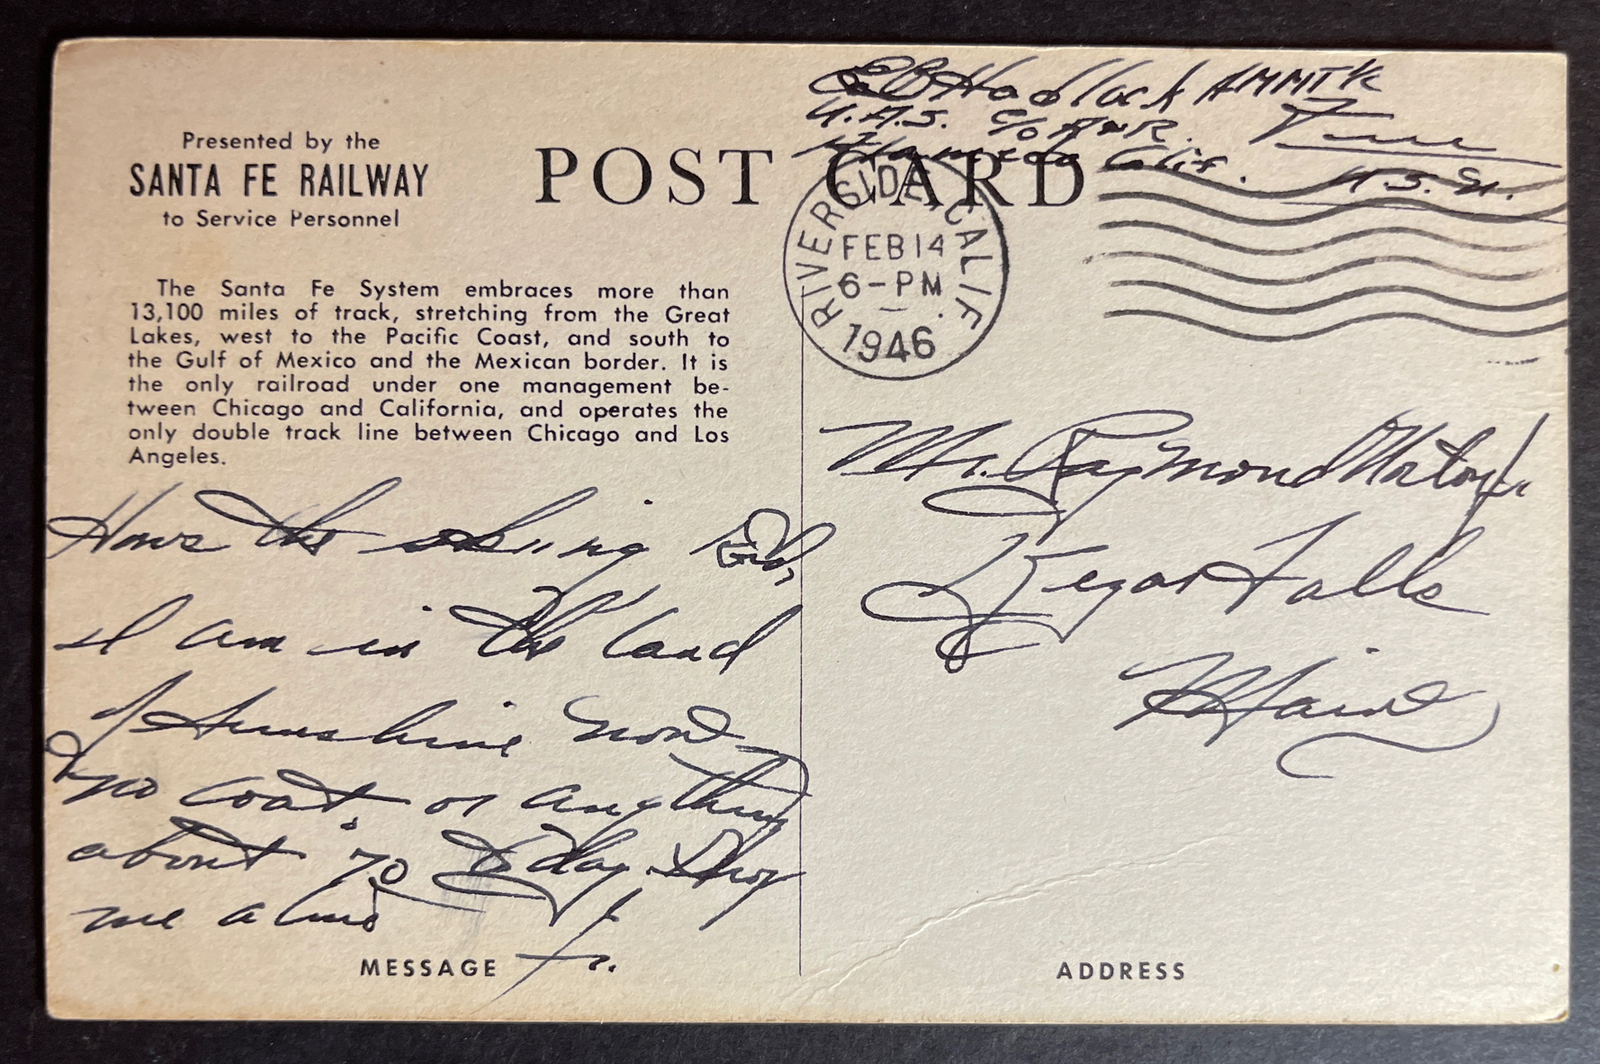 Presented by the
SANTA FE RAILWAY
to Service Personnel
POST CARD
The Santa Fe System embraces more than
13,100 miles of track, stretching from the Great
Lakes, west to the Pacific Coast, and south to
the Gulf of Mexico and the Mexican border. It is
the only railroad under one management be-
tween Chicago and California, and operates the
only double track line between Chicago and Los
Angeles.
Hows the skiing
I am in the land
of Sunshine now
no coat or anything
about 70 today. Drop
me a line
Jr.
MESSAGE
Hadlock AMMT
N.A.S. C/o
Calif.
U.S.N.
RIVERSIDE, CALIF.
FEB 14
6-PM
1946
Mr. Raymond
Kezar Falls
Maine
ADDRESS